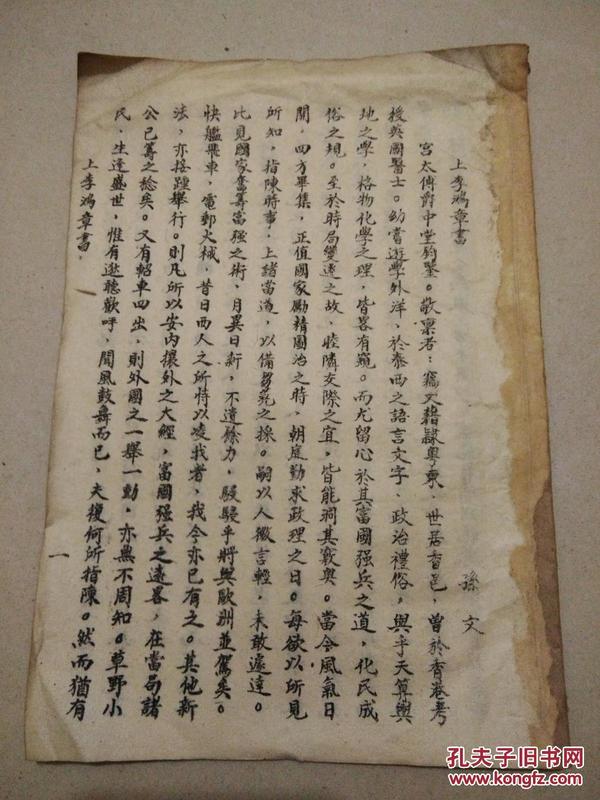 上李鴻章書
孫文
宮太傅爵中堂鈞鑒。敬稟者:竊文籍隸粵東,世居香邑,曾於香港考
授英國醫士。幼嘗遊學外洋、於泰西之語言文字、政治禮俗,與乎天算輿
地之學,格物化學之理,皆畧有窺。而尤留心於其富國强兵之道,化民成
俗之規。至於時局變遷之故、睦隣交際之宜,皆能洞其竅奧。當今風氣日
開,四方畢集,正值國家勵精圖治之時、朝庭勤求政理之日。每欲以所見
所知,指陳時事,上諸當道,以備芻蕘之採。嗣以人微言輕,未敢遽達。
比見國家奮籌富强之術、月異日新,不遺餘力,駸駸乎將與歐洲並駕矣。
快艦飛車,電郵火械,昔日西人之所恃以凌我者,我今亦已有之。其他新
法,亦接踵舉行。則凡所以安內攘外之大經,富國强兵之遠畧,在當局諸
公已籌之稔矣。又有軺車四出,則外國之一舉一動,亦無不周知。草野小
民,生逢盛世,惟有逖聽歡呼,聞風鼓舞而已,夫復何所指陳。然而猶有
上李鴻章書,
一
孔夫子旧书网
www.kongfz.com